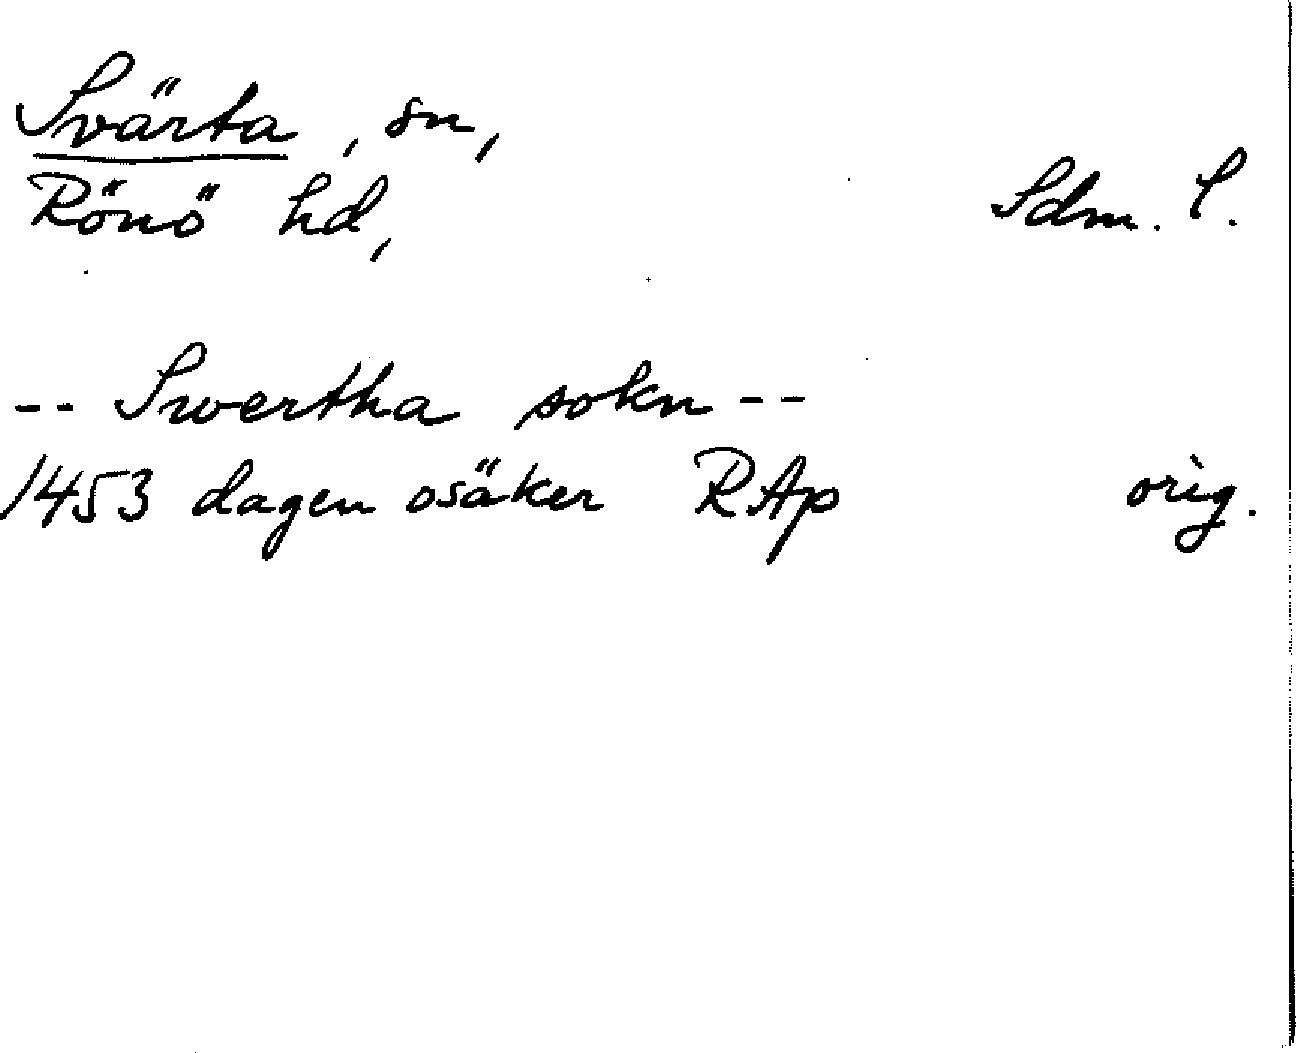 Svärta, sn,
Rönö hd, Sdm. l.
-- Swertha sokn --
1453 dagen osäker RAp orig.